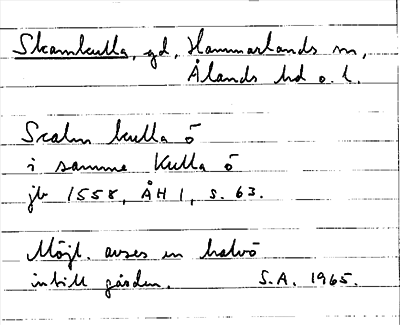 Skarnkulla, gd, Hammarlands sn,
Ålands hd o. l.
Scalm kulla ö
i samme Kulla ö
jb 1558, ÅH 1, s. 63.
Möjl. avses en halvö
intill gården. S.A. 1965.